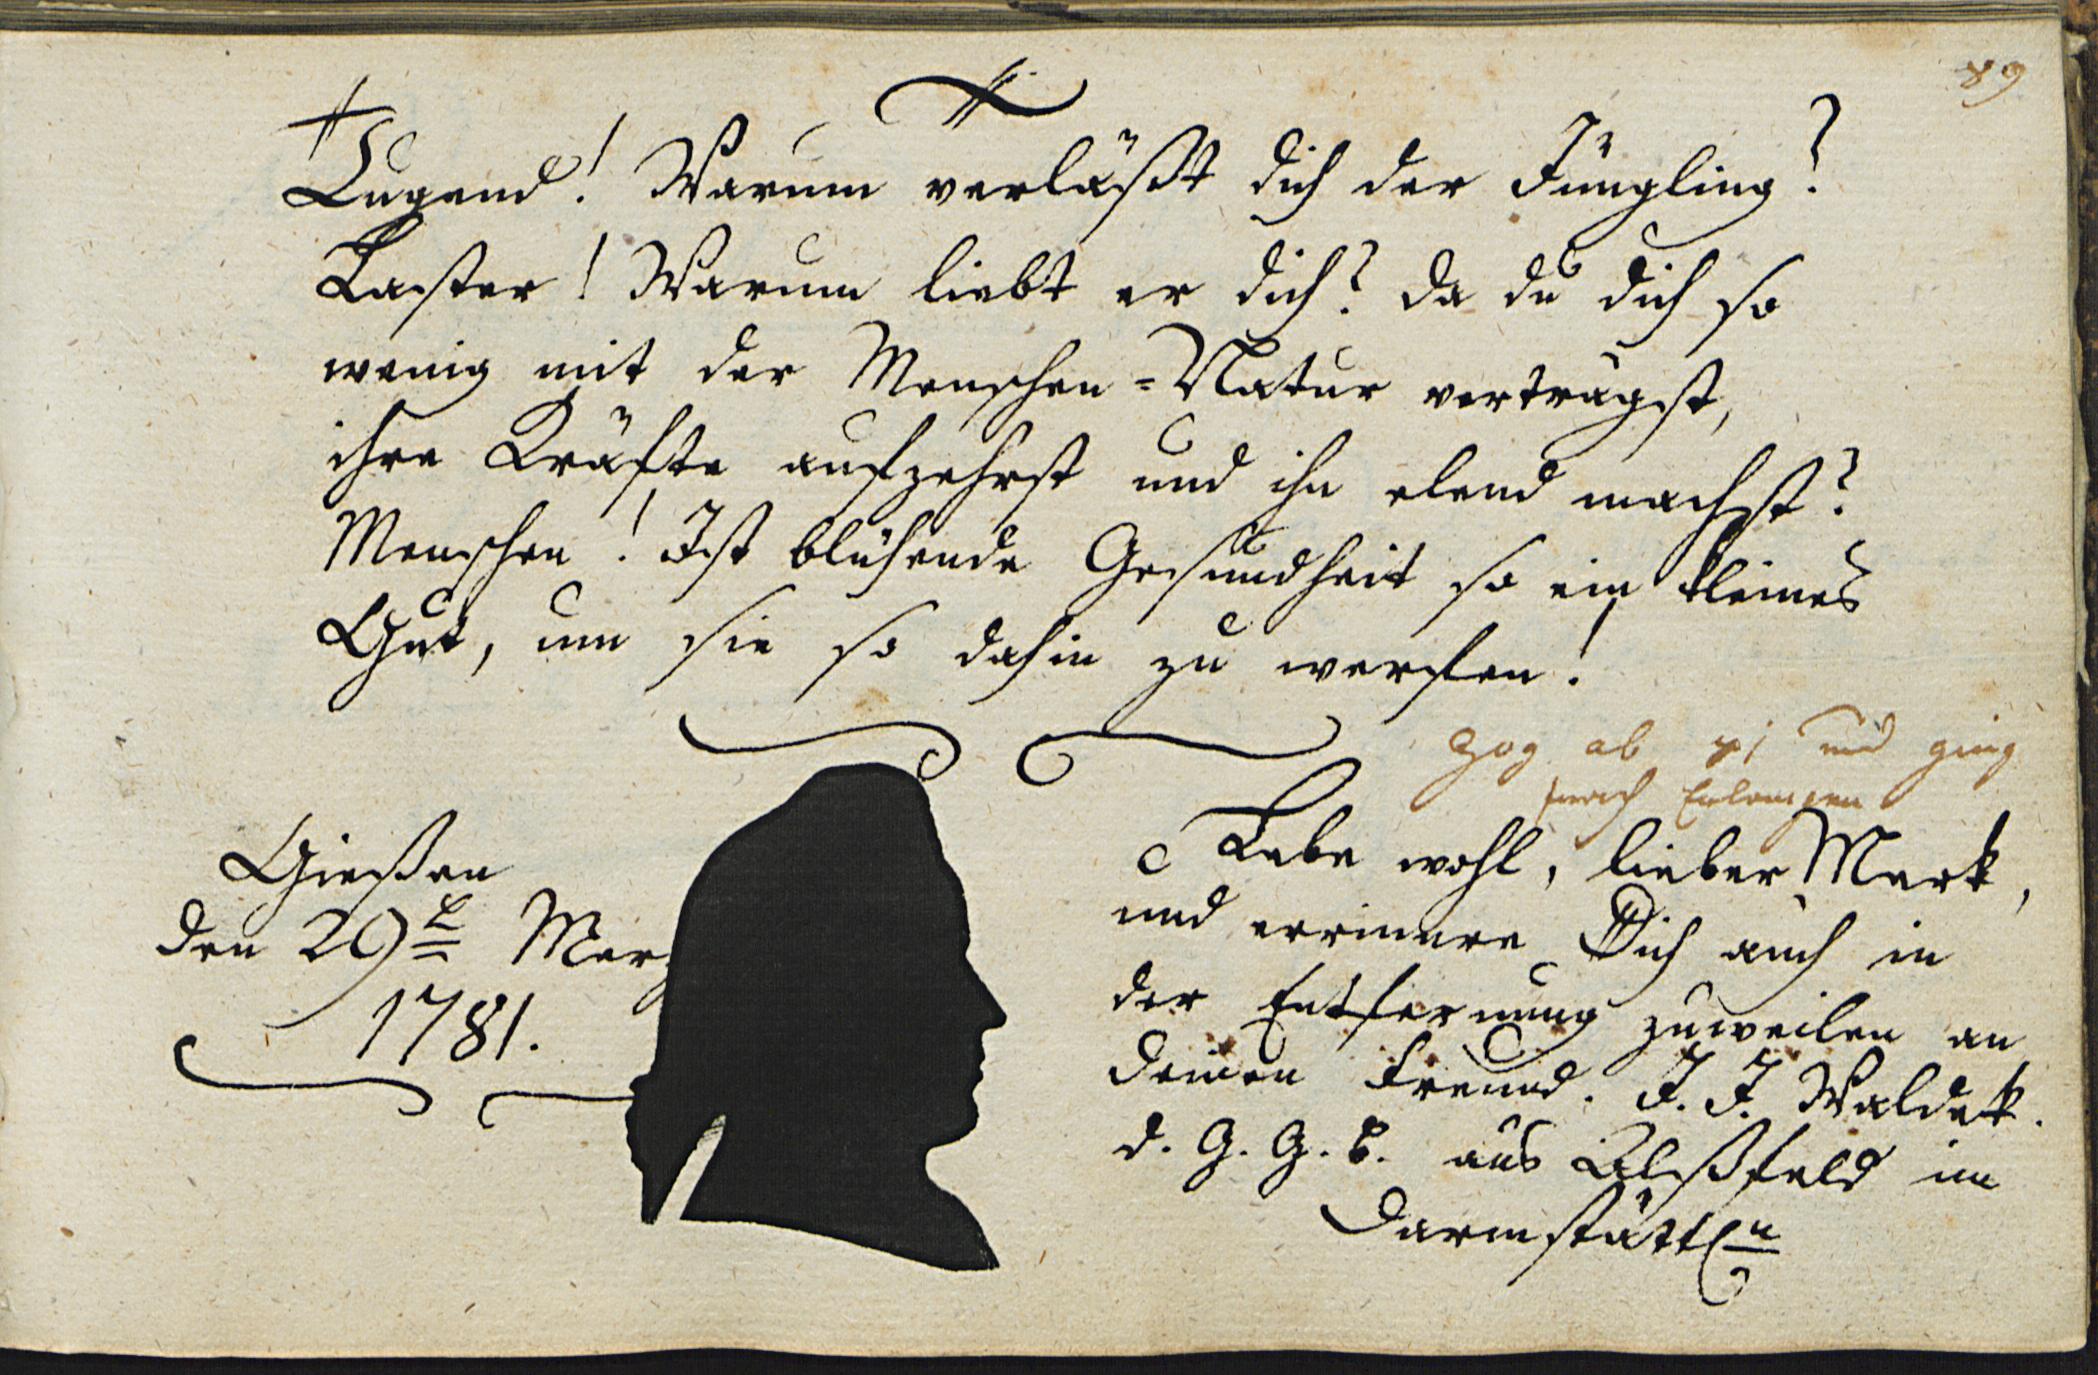 89
Tugend! Warum verläßt dich der Jüngling?
Laster! Warum liebt er dich? da du dich so
wenig mit der Menschen=Natur verträgst,
ihre Kräfte aufzehrst und ihn elend machst?
Menschen! Ist blühende Gesundheit so ein kleines
Gut, um sie so dahin zu werfen!
zog ab und ging
nach Erlangen
Giesen
den 29t Merz
1781.
Lebe wohl, lieber Merk,
und errinnere Dich auch in
der Entfernung zuweilen an
deinen Freund. J. J. Waldek.
d. G. G. B. aus Alsfeld im
Darmstättn